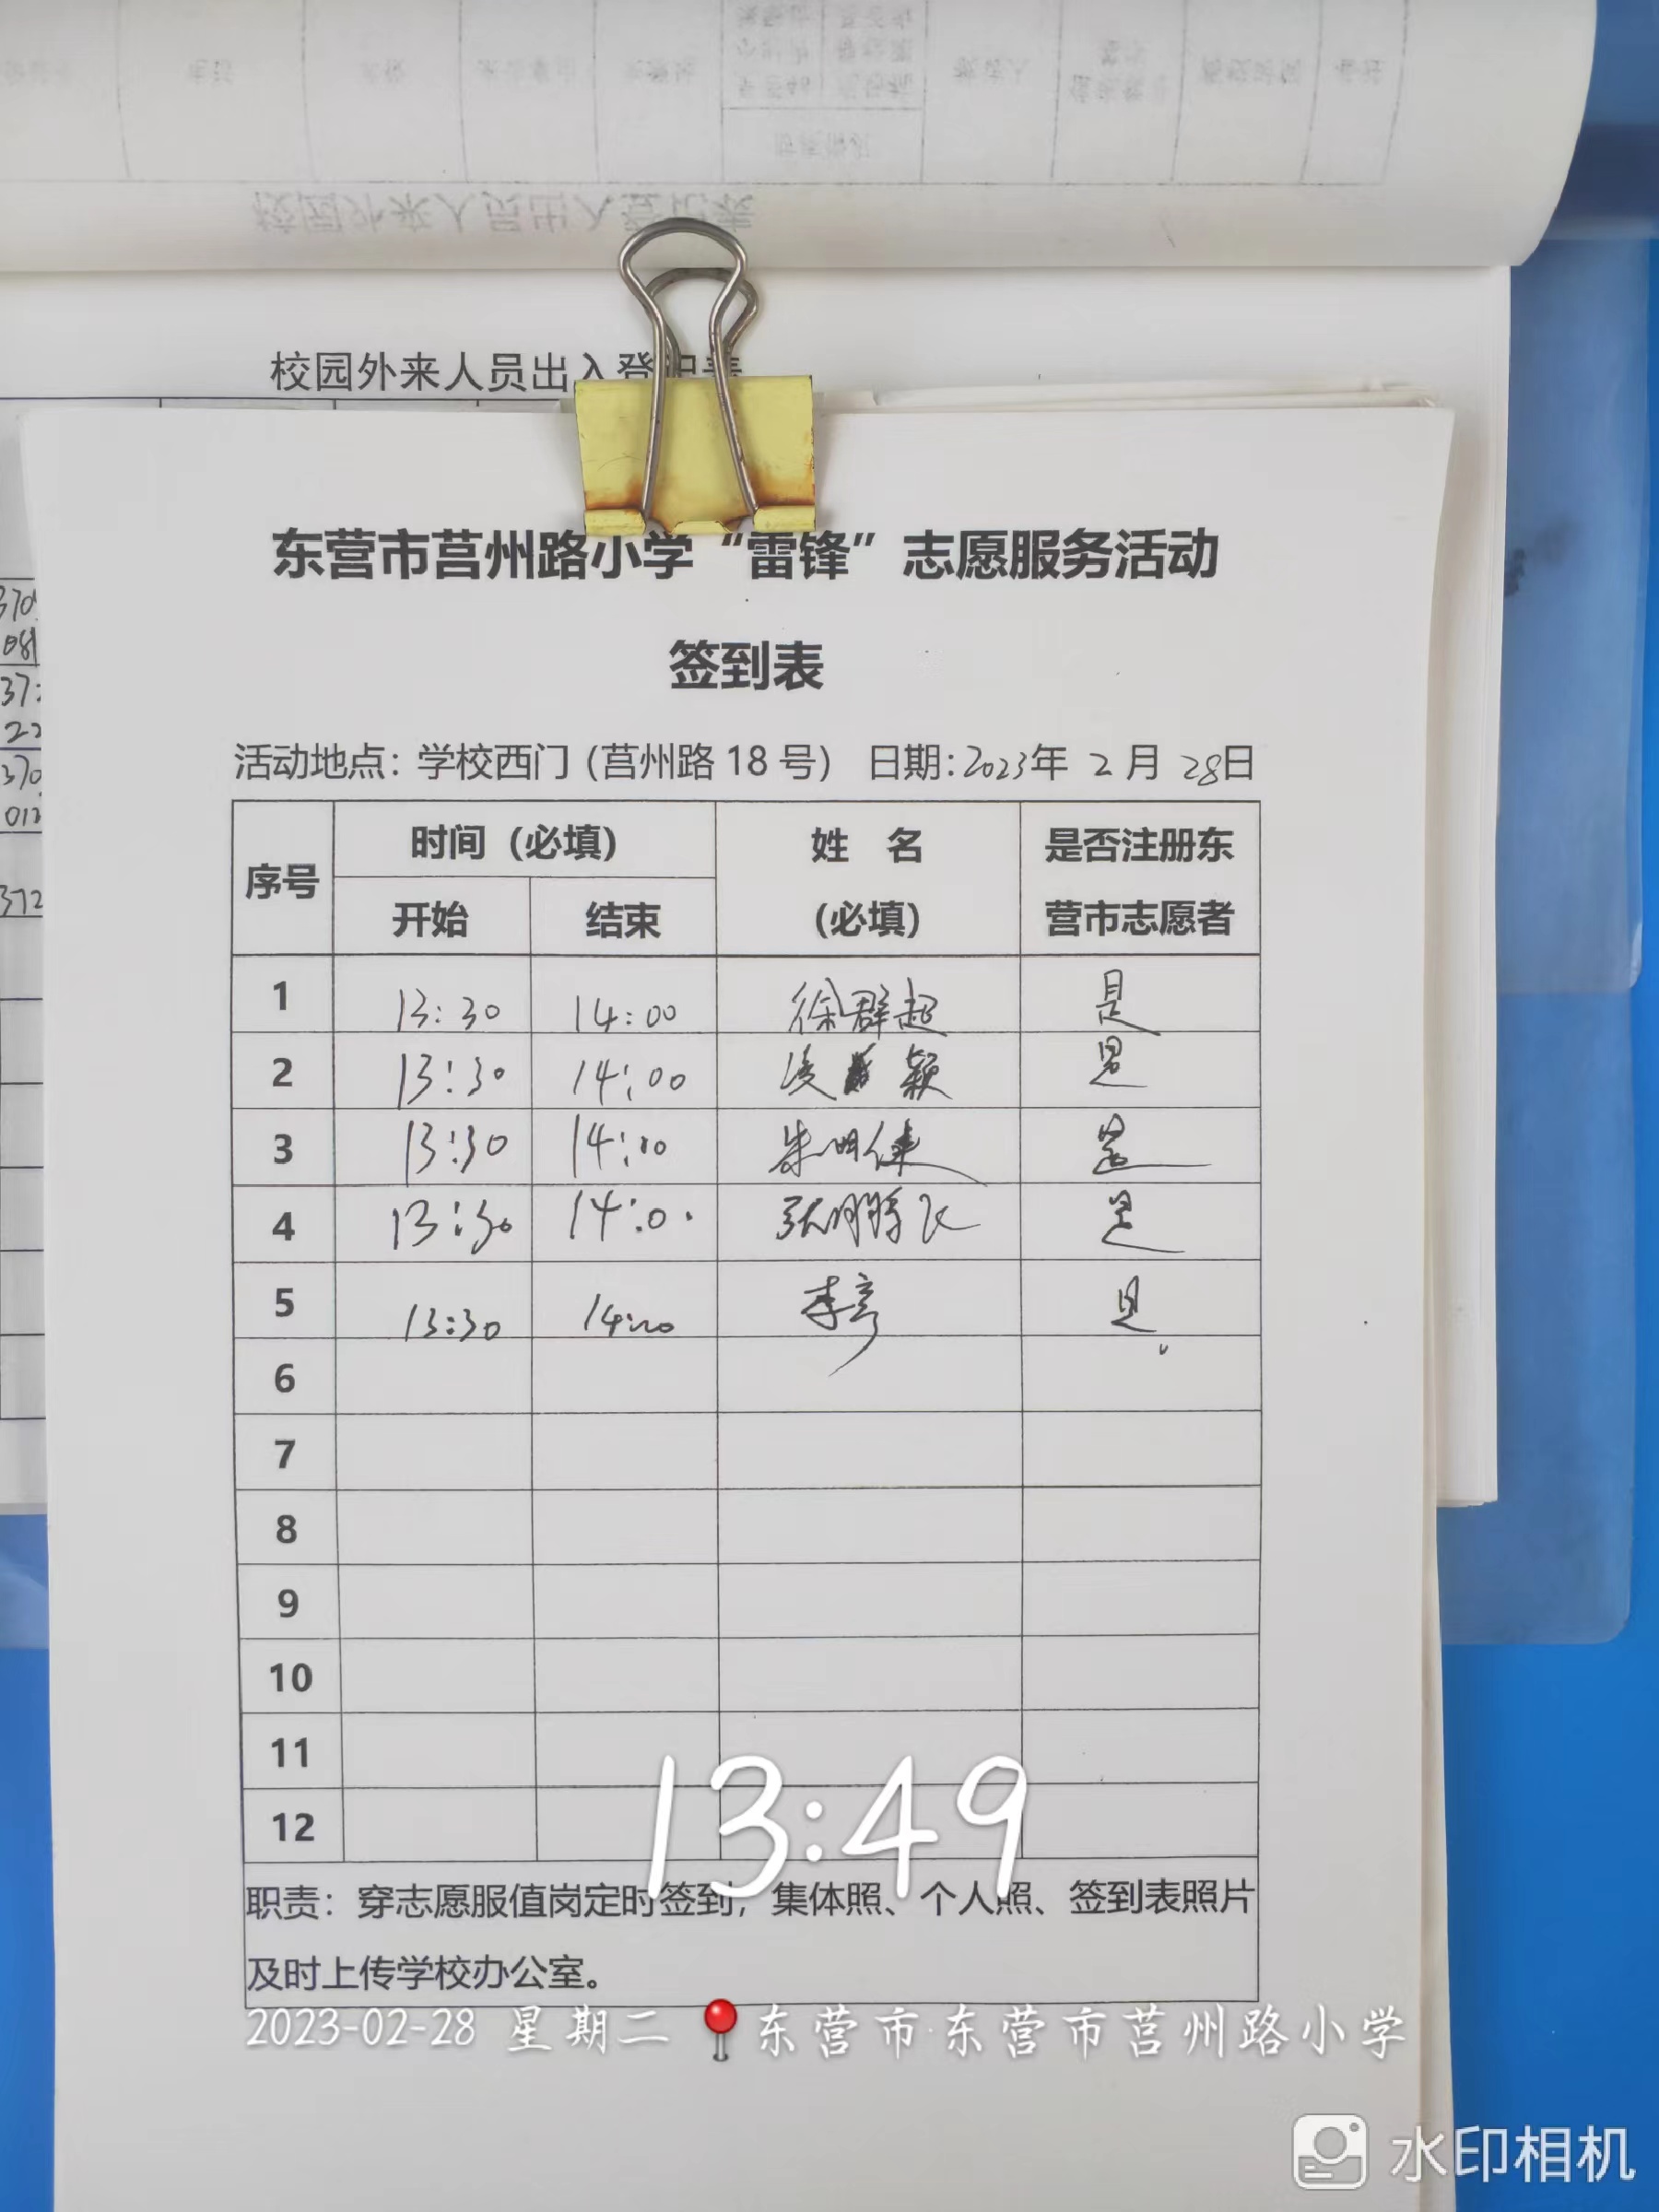 校园外来人员出入登记表
校园外来人员出入登记表
370
081
37
22
370
012
372
东营市莒州路小学“雷锋”志愿服务活动
签到表
活动地点：学校西门（莒州路 18 号） 日期：2023年 2 月 28日
序号 时间（必填） 姓 名 是否注册东
开始 结束 （必填） 营市志愿者
1 13:30 14:00 徐群超 是
2 13:30 14:00 凌 颖 是
3 13:30 14:10 朱明健 是
4 13:30 14:0. 张鹏飞 是
5 13:30 14:00 李彦 是
6
7
8
9
10
11
12
13:49
职责：穿志愿服值岗定时签到，集体照、个人照、签到表照片
及时上传学校办公室。
2023-02-28 星期二 东营市·东营市莒州路小学
水印相机